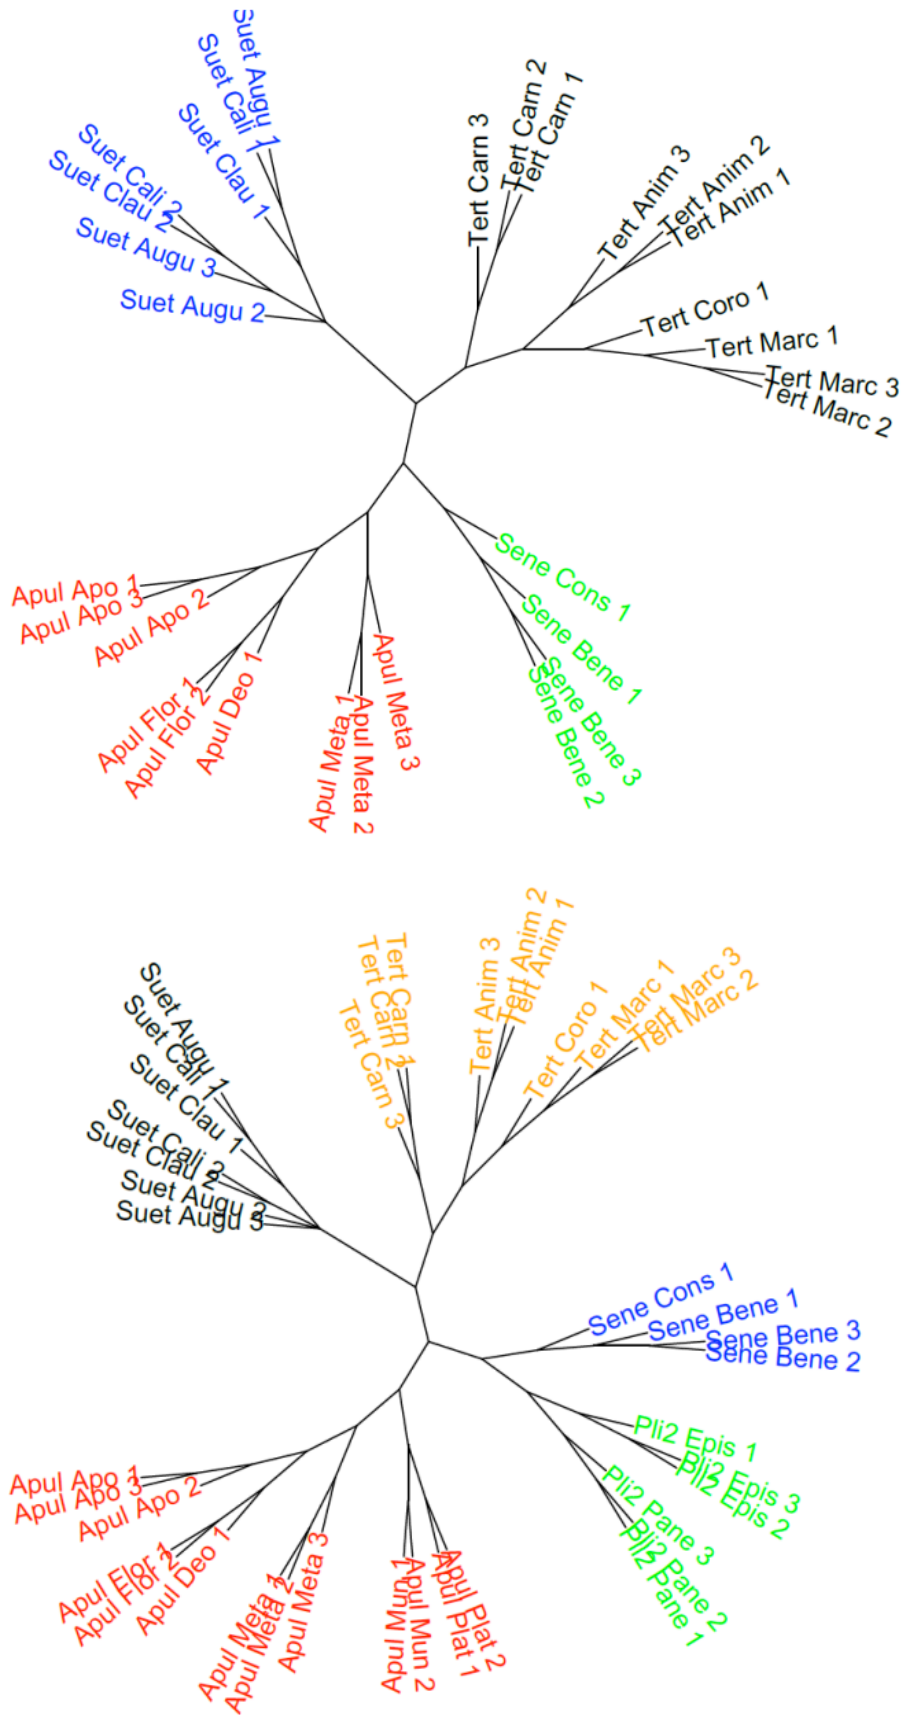 Suet Augu 1
Suet Cali 1
Suet Clau 1
Suet Cali 2
Suet Clau 2
Suet Augu 3
Suet Augu 2
Tert Carn 3
Tert Carn 2
Tert Carn 1
Tert Anim 3
Tert Anim 2
Tert Anim 1
Tert Coro 1
Tert Marc 1
Tert Marc 3
Tert Marc 2
Apul Apo 1
Apul Apo 3
Apul Apo 2
Apul Flor 1
Apul Flor 2
Apul Deo 1
Apul Meta 1
Apul Meta 2
Apul Meta 3
Sene Cons 1
Sene Bene 1
Sene Bene 3
Sene Bene 2
Suet Augu 1
Suet Cali 1
Suet Clau 1
Suet Cali 2
Suet Clau 2
Suet Augu 2
Suet Augu 3
Tert Carn 1
Tert Carn 2
Tert Carn 3
Tert Anim 3
Tert Anim 2
Tert Anim 1
Tert Coro 1
Tert Marc 1
Tert Marc 3
Tert Marc 2
Sene Cons 1
Sene Bene 1
Sene Bene 3
Sene Bene 2
Pli2 Epis 1
Pli2 Epis 3
Pli2 Epis 2
Pli2 Pane 3
Pli2 Pane 2
Pli2 Pane 1
Apul Apo 1
Apul Apo 3
Apul Apo 2
Apul Flor 1
Apul Flor 2
Apul Deo 1
Apul Meta 1
Apul Meta 2
Apul Meta 3
Apul Mun 1
Apul Mun 2
Apul Plat 1
Apul Plat 2